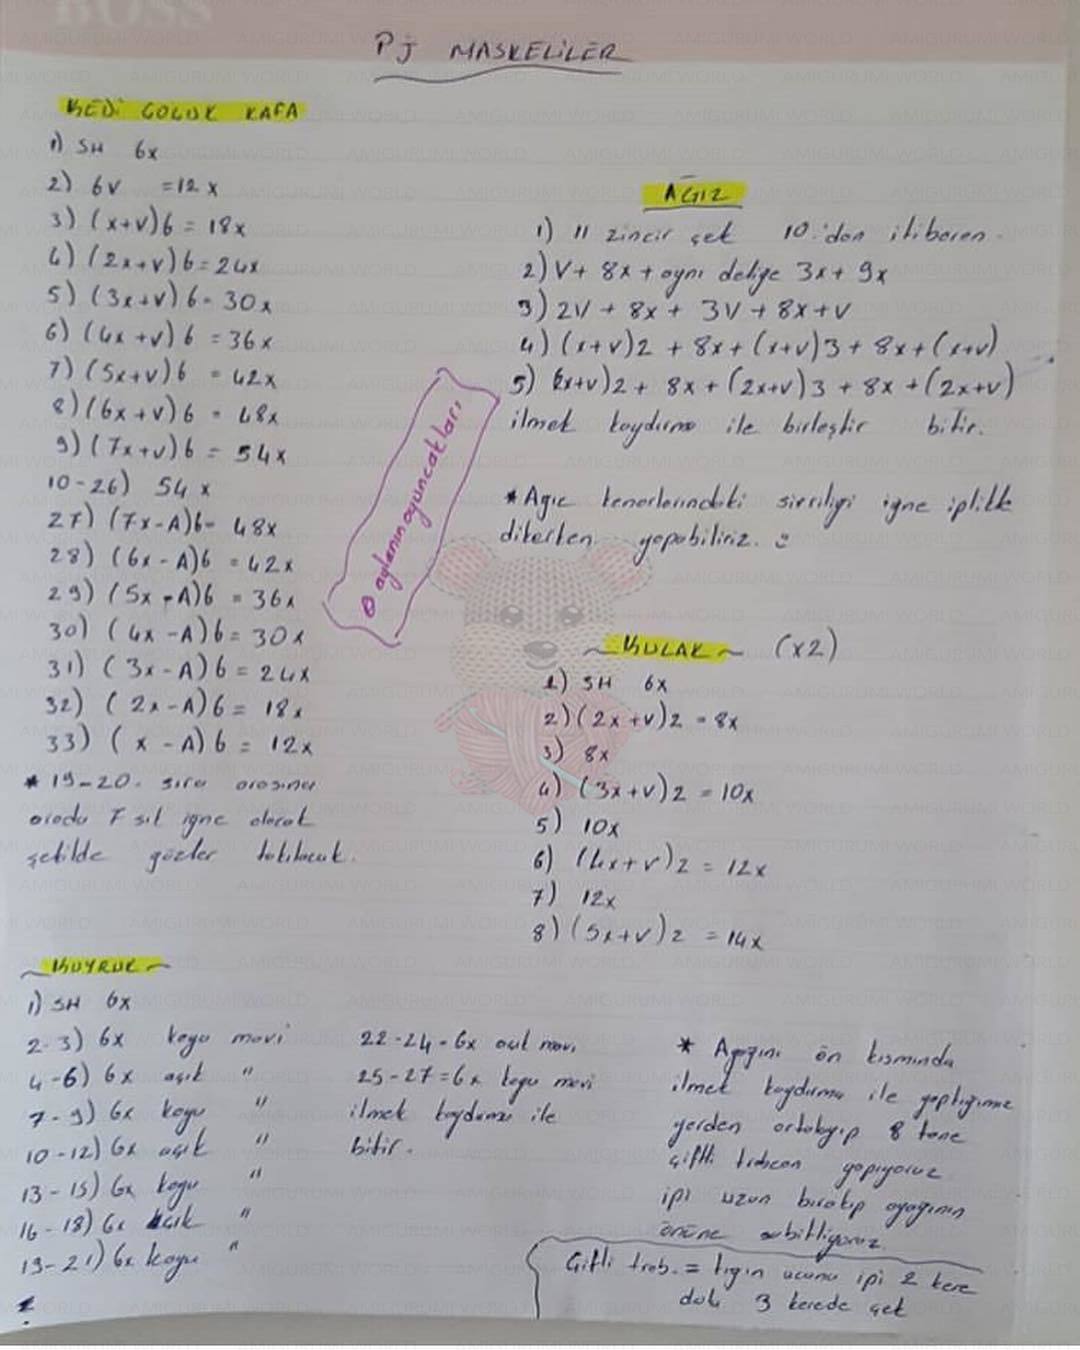 BOSS
PJ MASKELİLER
KEDİ ÇOCUK KAFA
1) SH 6x
2) 6V =12x
3) (x+v)6 = 18x
4) (2x+v)6=24x
5) (3x+v)6=30x
6) (4x+v)6 =36x
7) (5x+v)6 =42x
8) (6x+v)6 = 48x
9) (7x+v)6 = 54x
10-26) 54x
27) (7x-A)6= 48x
28) (6x-A)6 =42x
29) (5x-A)6 =36x
30) (4x-A)6=30x
31) (3x-A)6=24x
32) (2x-A)6= 18x
33) (x-A)6= 12x
* 19-20. sıra arasına
arada 7 sık iğne olacak
şekilde gözler takılacak.
AĞIZ
1) 11 zincir çek 10.'dan itibaren.
2) V+ 8x+aynı deliğe 3x+9x
3) 2V + 8x + 3V+8x+v
4) (x+v)2 + 8x+(x+v)3+8x+(x+v)
5) (2x+v)2+ 8x+(2x+v)3+8x+(2x+v)
ilmek kaydırma ile birleştir bitir.
* Ağız kenarlarındaki sivriliği iğne iplikle
dikerken yapabiliriz.
aylaninoyuncaklari
~KULAK~ (x2)
1) SH 6x
2) (2x+v)2 =8x
3) 8x
4) (3x+v)2 =10x
5) 10x
6) (4x+v)2 = 12x
7) 12x
8) (5x+v)2 =14x
~KUYRUK~
1) SH 6x
2-3) 6x koyu mavi
4-6) 6x açık "
7-9) 6x koyu "
10-12) 6x açık "
13-15) 6x koyu "
16-18) 6x açık "
19-21) 6x koyu "
22-24=6x açık mavi
25-27=6x koyu mavi
ilmek kaydırma ile
bitir.
* Ayağını ön kısmında
ilmek kaydırma ile yaptığımız
yerden ortalayıp 8 tane
çiftli trabzan yapıyoruz
ipi uzun bırakıp ayağının
önüne sabitliyoruz.
Çiftli trab.= tığın ucunu ipi 2 kere
dola 3 kerede çek